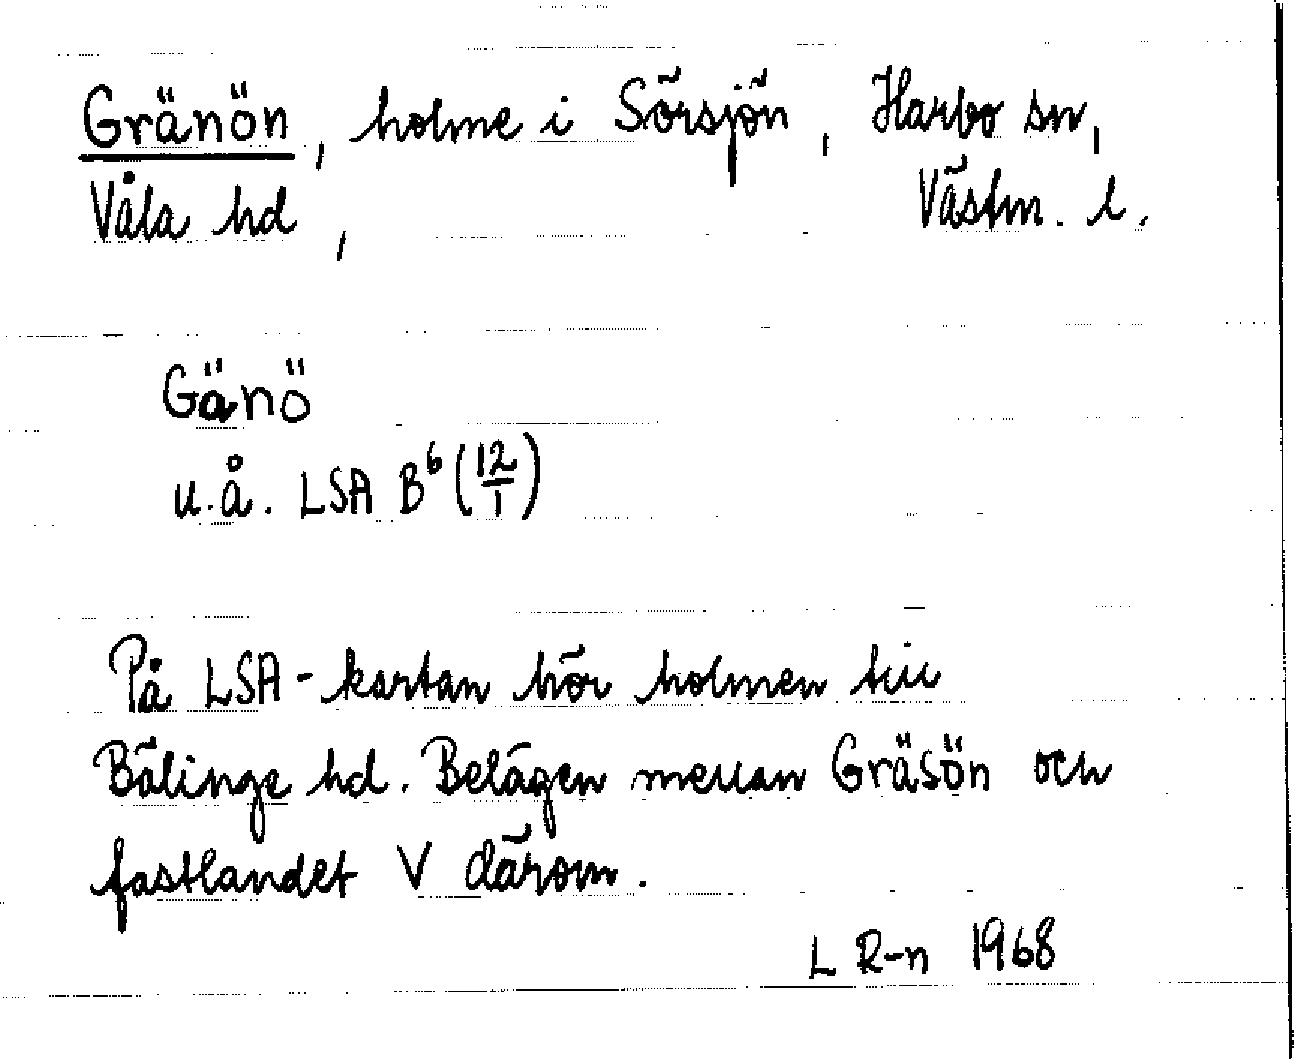 Gränön, holme i Sörsjön, Harbo sn,
Våla hd, Västm. l.
Gänö
u.å. LSA B⁶ (12/1)
På LSA-kartan hör holmen till
Bälinge hd. Belägen mellan Gräsön och
fastlandet V därom.
L R-n 1968